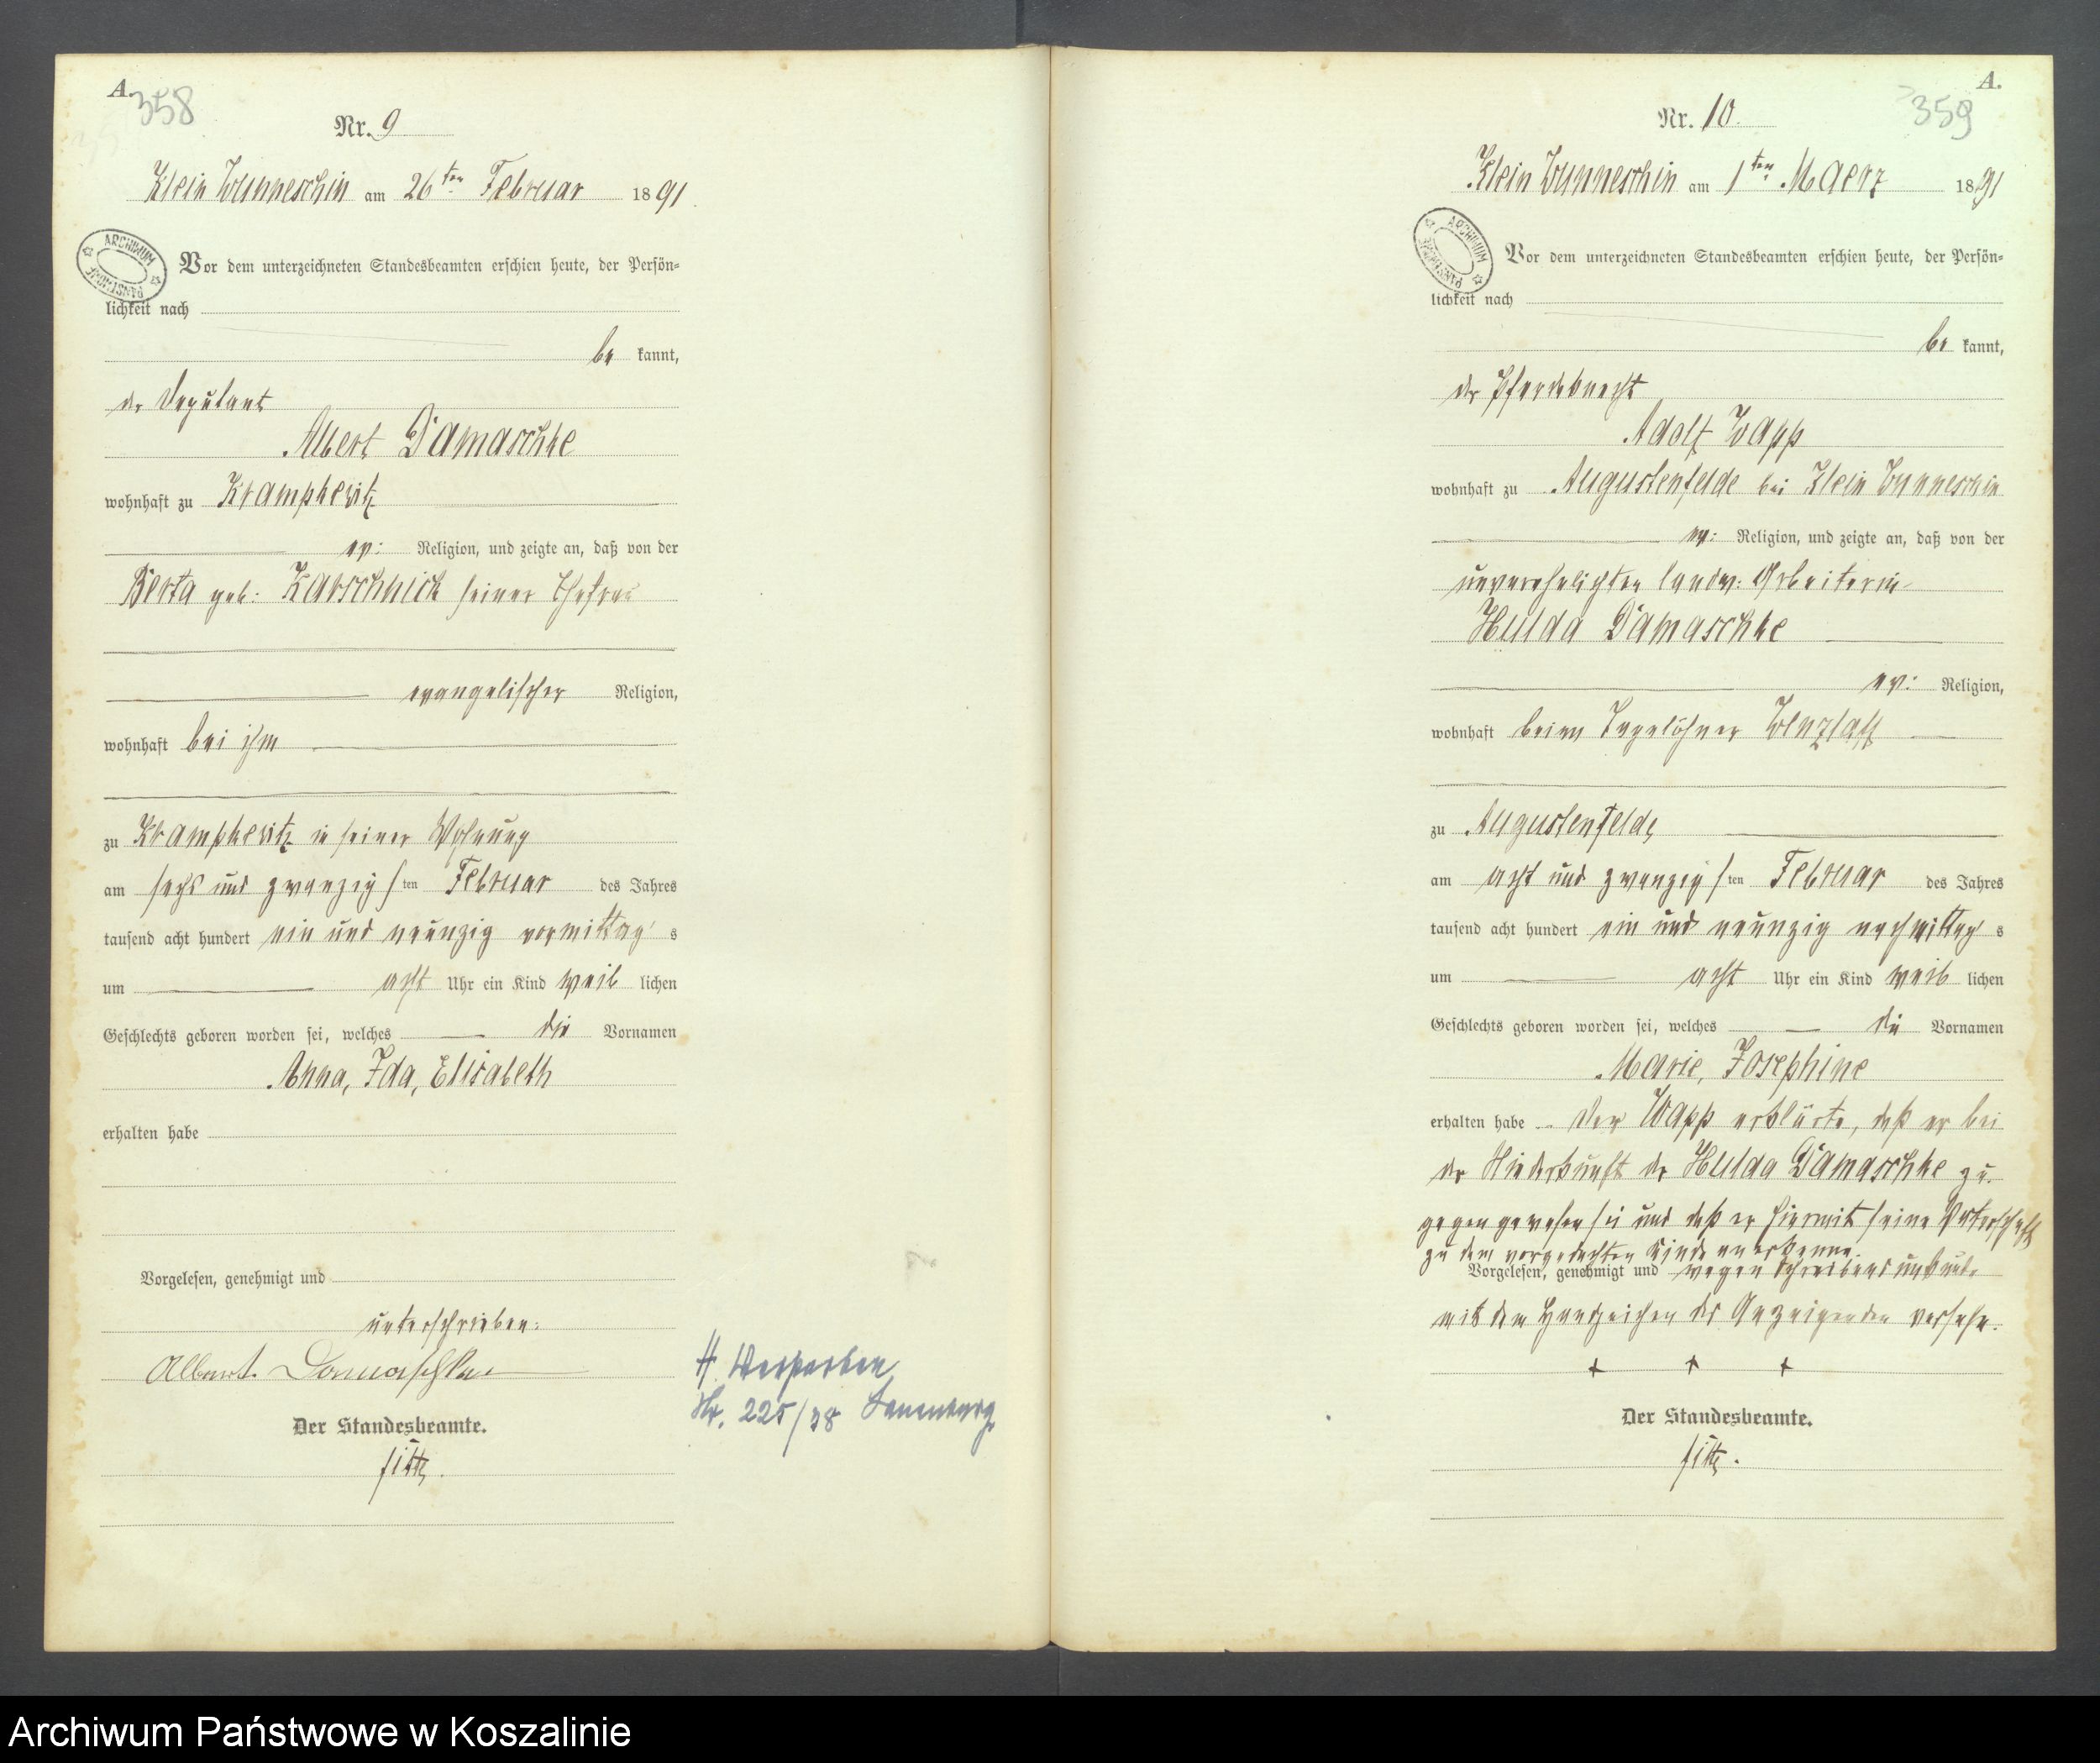 A.
358
Nr. 9
Klein Wunneschin am 26ten Februar 1891
ARCHIWUM PAŃSTWOWE
Vor dem unterzeichneten Standesbeamten erschien heute, der Persön=
lichkeit nach
be kannt,
der Deputant
Albert Damaschke
wohnhaft zu Krampkewitz
ev: Religion, und zeigte an, daß von der
Berta geb: Karschnick seiner Ehefrau
evangelischer Religion,
wohnhaft bei ihm
zu Krampkewitz in seiner Wohnung
am sechs und zwanzigsten Februar des Jahres
tausend acht hundert ein und neunzig vormittags
um acht Uhr ein Kind weiblichen
Geschlechts geboren worden sei, welches die Vornamen
Anna, Ida, Elisabeth
erhalten habe
Vorgelesen, genehmigt und
unterschrieben:
Albert Damaschke
Der Standesbeamte.
H.
Nr. 225/38 Lauenburg
A.
359
Nr. 10.
Klein Wunneschin am 1ten Maerz 1891
ARCHIWUM PAŃSTWOWE
Vor dem unterzeichneten Standesbeamten erschien heute, der Persön=
lichkeit nach
be kannt,
der Pferdeknecht
Adolf Wapp
wohnhaft zu Augustenfelde bei Klein Wunneschin
ev: Religion, und zeigte an, daß von der
unverehelichten landw: Arbeiterin
Hulda Damaschke
ev: Religion,
wohnhaft beim Tagelöhner Wenzlaff
zu Augustenfelde
am acht und zwanzigsten Februar des Jahres
tausend acht hundert ein und neunzig nachmittags
um acht Uhr ein Kind weiblichen
Geschlechts geboren worden sei, welches die Vornamen
Marie, Josephine
erhalten habe. Der Wapp erklärte, daß er bei
der Niederkunft der Hulda Damaschke zu=
gegen gewesen sei und daß er hiermit seine Vaterschaft
zu dem vorgedachten Kinde anerkenne.
Vorgelesen, genehmigt und wegen Schreibensunkunde
mit dem Handzeichen des Anzeigenden versehen.
+ + +
Der Standesbeamte.
Archiwum Państwowe w Koszalinie